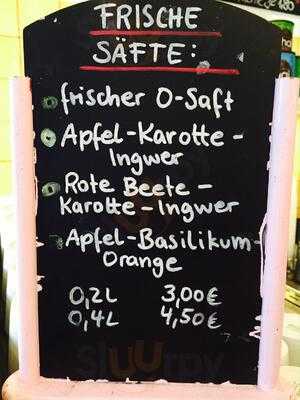 FRISCHE
SÄFTE:
frischer O-Saft
Apfel-Karotte-
Ingwer
Rote Beete-
Karotte-Ingwer
Apfel-Basilikum-
Orange
0,2L 3,00€
0,4L 4,50€
sluurpy